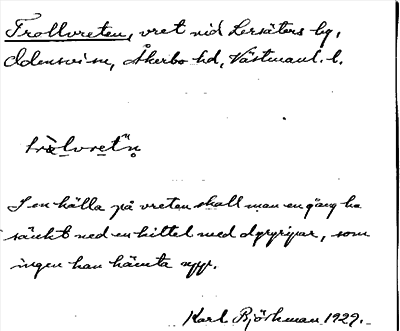 Trollvreten, vret vid Lersäters by,
Odensvi sn, Åkerbo hd, Västmanl. l.
I en källa på vreten skall man en gång ha
sänkt ned en kittel med dyrgripar, som
ingen kan hämta upp.
Karl Björkman 1929.